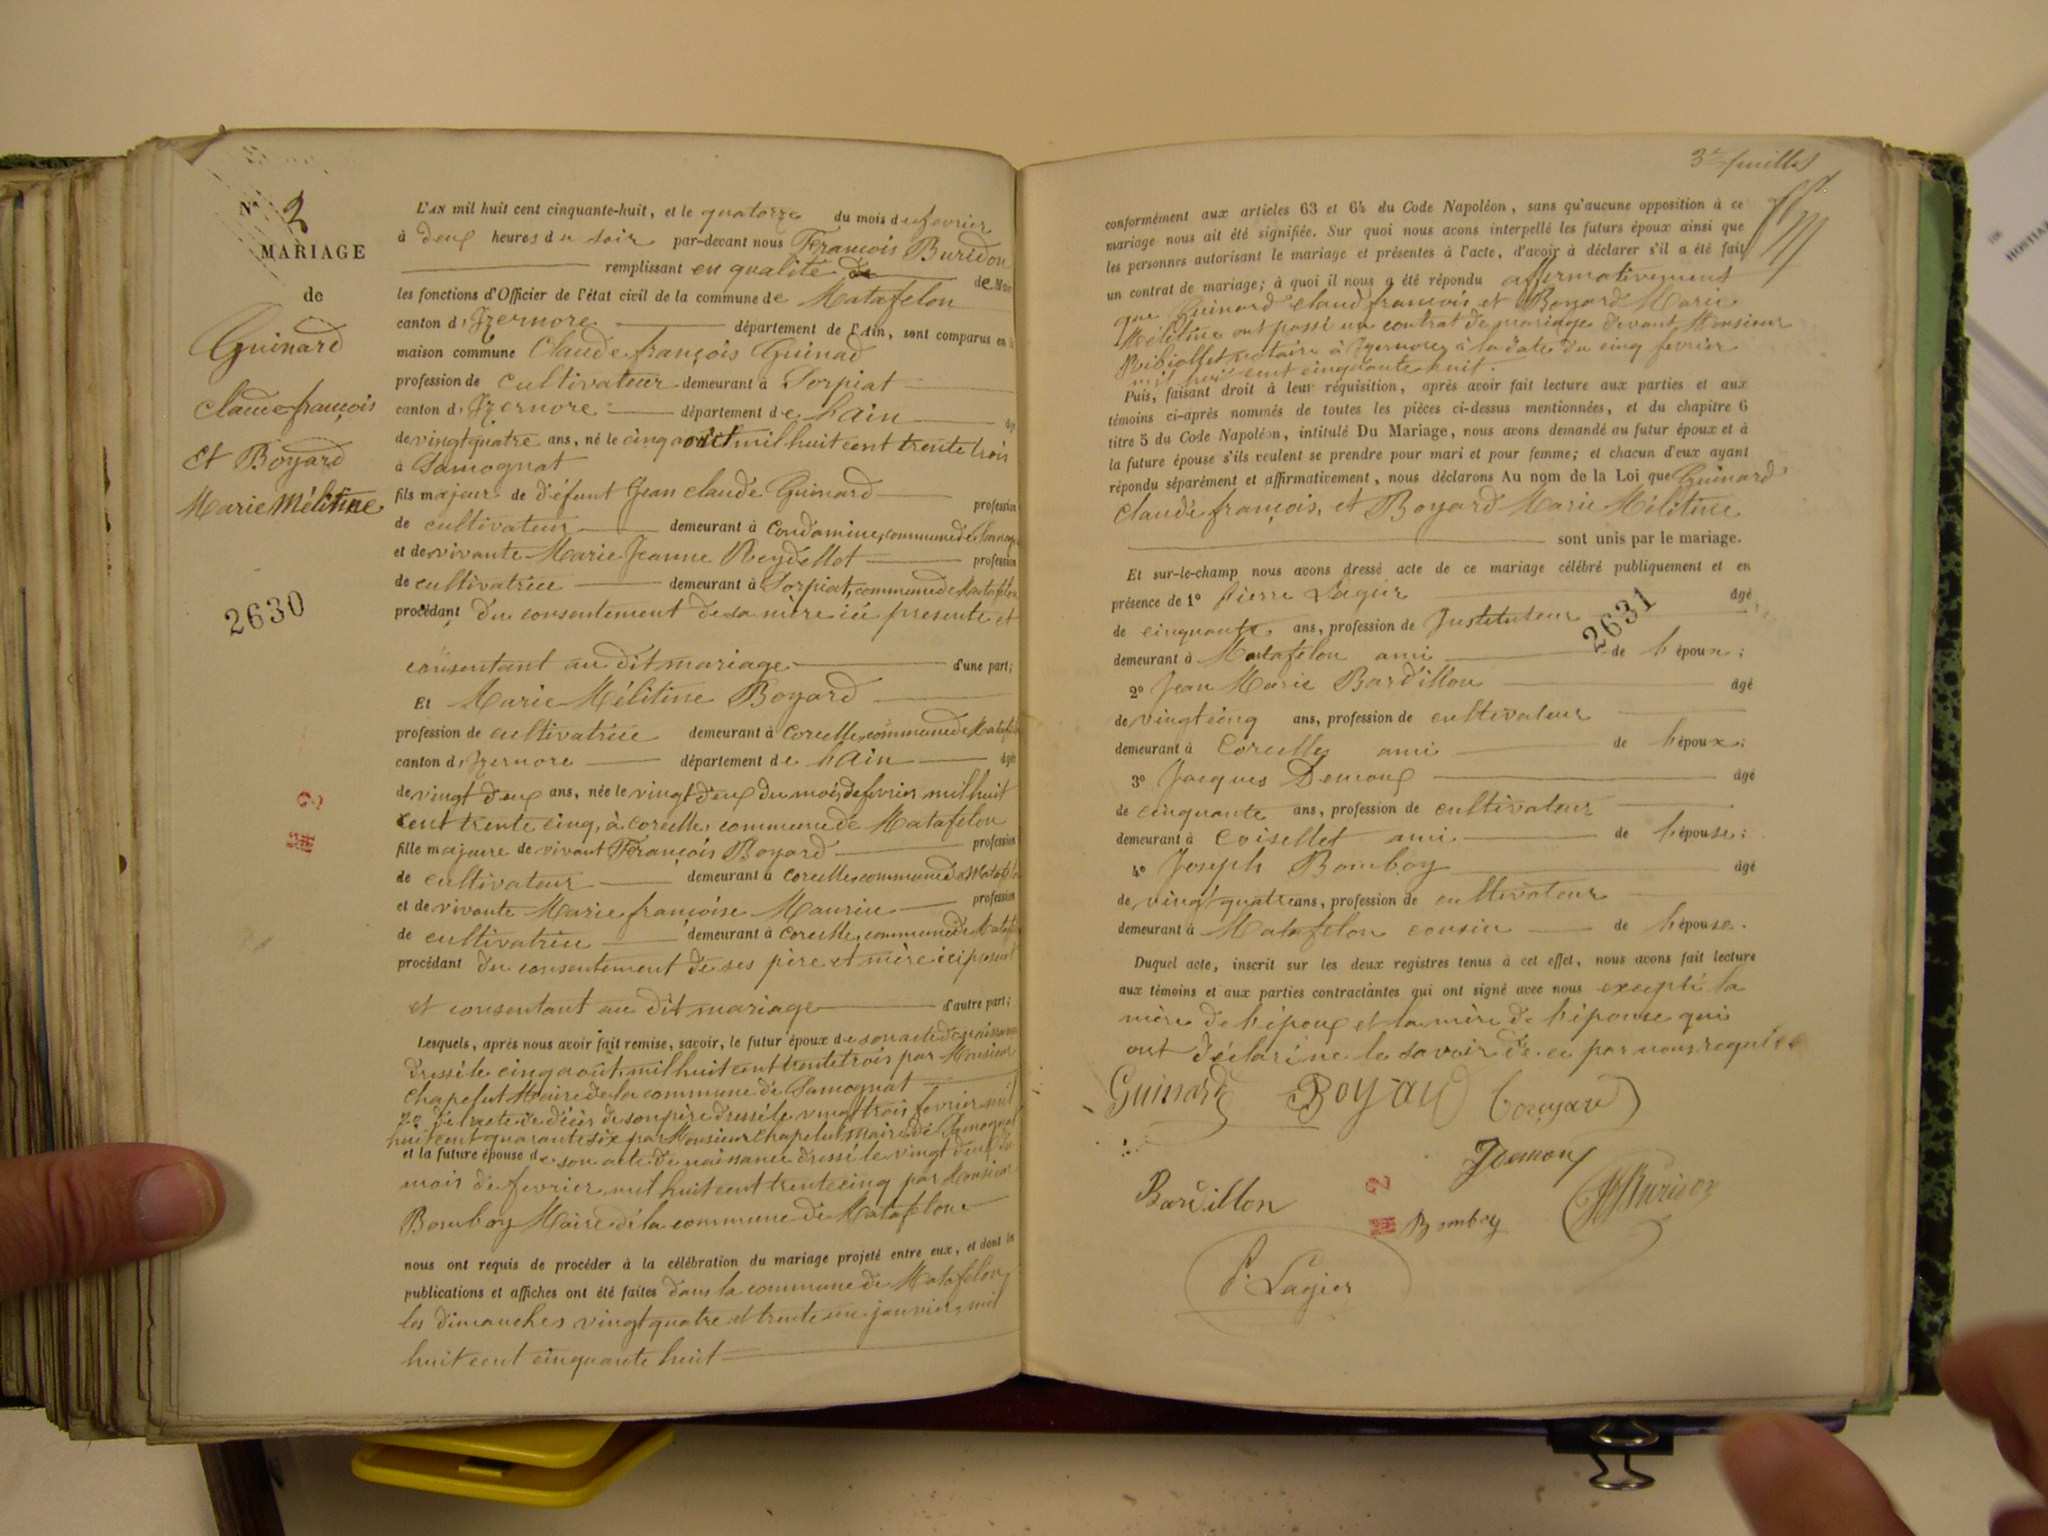 N° 3
MARIAGE
de
Guinard
Claude françois
Et Boyard
Marie Mélitine
2630
L'AN mil huit cent cinquante-huit, et le quatorze du mois de fevrier
à deux heures du soir par-devant nous François Buridon
remplissant en qualité de
les fonctions d'Officier de l'état civil de la commune de Matafelon
canton d'Izernore département de l'Ain, sont comparus en la
maison commune Claude françois Guinad
profession de cultivateur demeurant à Sorpiat
canton d'Izernore département de l'Ain
de vingt quatre ans, né le cinq août mil huit cent trente trois
à Samognat
fils majeur de défunt Jean claude Guinard profession
de cultivateur demeurant à Condamine, commune de
et de vivante Marie Jeanne Reydellot profession
de cultivatrice demeurant à Sorpiat, commune de Matafelon
procédant du consentement de sa mère ici presente et
consentant au dit mariage d'une part;
Et Marie Mélitine Boyard
profession de cultivatrice demeurant à Corcelle, commune de Matafelon
canton d'Izernore département de l'Ain âgée
de vingt deux ans, née le vingt deux du mois de fevrier mil huit
cent trente cinq, à corcelle, commune de Matafelon
fille majeure de vivant François Boyard profession
de cultivateur demeurant à corcelle, commune de Matafelon
et de vivante Marie françoise Maurin profession
de cultivatrice demeurant à Corcelle, commune de Matafelon
procédant du consentement de ses père et mère ici présent
et consentant au dit mariage d'autre part;
Lesquels, après nous avoir fait remise, savoir, le futur époux de son acte de naissance
dressé le cinq août, mil huit cent trente trois par Monsieur
Chapelut Maire de la commune de Samognat
2° de l'acte de décès de son père dressé le vingt trois fevrier mil
huit cent quarante six par Monsieur Chapelut maire de Samognat
et la future épouse de son acte de naissance dressé le vingt deux du
mois de fevrier, mil huit cent trente cinq par Monsieur
Bomboy Maire de la commune de Matafelon
nous ont requis de procéder à la célébration du mariage projeté entre eux, et dont les
publications et affiches ont été faites dans la commune de Matafelon
les dimanches vingt quatre et trente un janvier, mil
huit cent cinquante huit
3e feuillet
conformément aux articles 63 et 64 du Code Napoléon, sans qu'aucune opposition à ce
mariage nous ait été signifiée. Sur quoi nous avons interpellé les futurs époux ainsi que
les personnes autorisant le mariage et présentes à l'acte, d'avoir à déclarer s'il a été fait
un contrat de mariage; à quoi il nous a été répondu affirmativement
que Guinard claud francois et Boyard Marie
Mélitine ont passé un contrat de mariage devant Monsieur
notaire à Izernore, à la date du cinq fevrier
mil huit cent cinquante huit.
Puis, faisant droit à leur réquisition, après avoir fait lecture aux parties et aux
témoins ci-après nommés de toutes les pièces ci-dessus mentionnées, et du chapitre 6
titre 5 du Code Napoléon, intitulé Du Mariage, nous avons demandé au futur époux et à
la future épouse s'ils veulent se prendre pour mari et pour femme; et chacun d'eux ayant
répondu séparément et affirmativement, nous déclarons Au nom de la Loi que Guinard
Claude françois, et Boyard Marie Mélitine
sont unis par le mariage.
Et sur-le-champ nous avons dressé acte de ce mariage célébré publiquement et en
présence de 1° Pierre Lagier âgé
de cinquante ans, profession de Instituteur
2631
demeurant à Matafelon ami de l'époux;
2° Jean Marie Bardillon âgé
de vingt cinq ans, profession de cultivateur
demeurant à Corcelles ami de l'époux;
3° Jacques Demoux âgé
de cinquante ans, profession de cultivateur
demeurant à Coisellet ami de l'épouse;
4° Joseph Bomboy âgé
de vingt quatre ans, profession de cultivateur
demeurant à Matafelon cousin de l'épouse.
Duquel acte, inscrit sur les deux registres tenus à cet effet, nous avons fait lecture
aux témoins et aux parties contractantes qui ont signé avec nous excepté la
mère de l'époux et la mère de l'épouse qui
ont déclaré ne le savoir de ce par nous requises
Guinard Boyard
Demoux
Bardillon Bomboy Buridon
P. Lagier